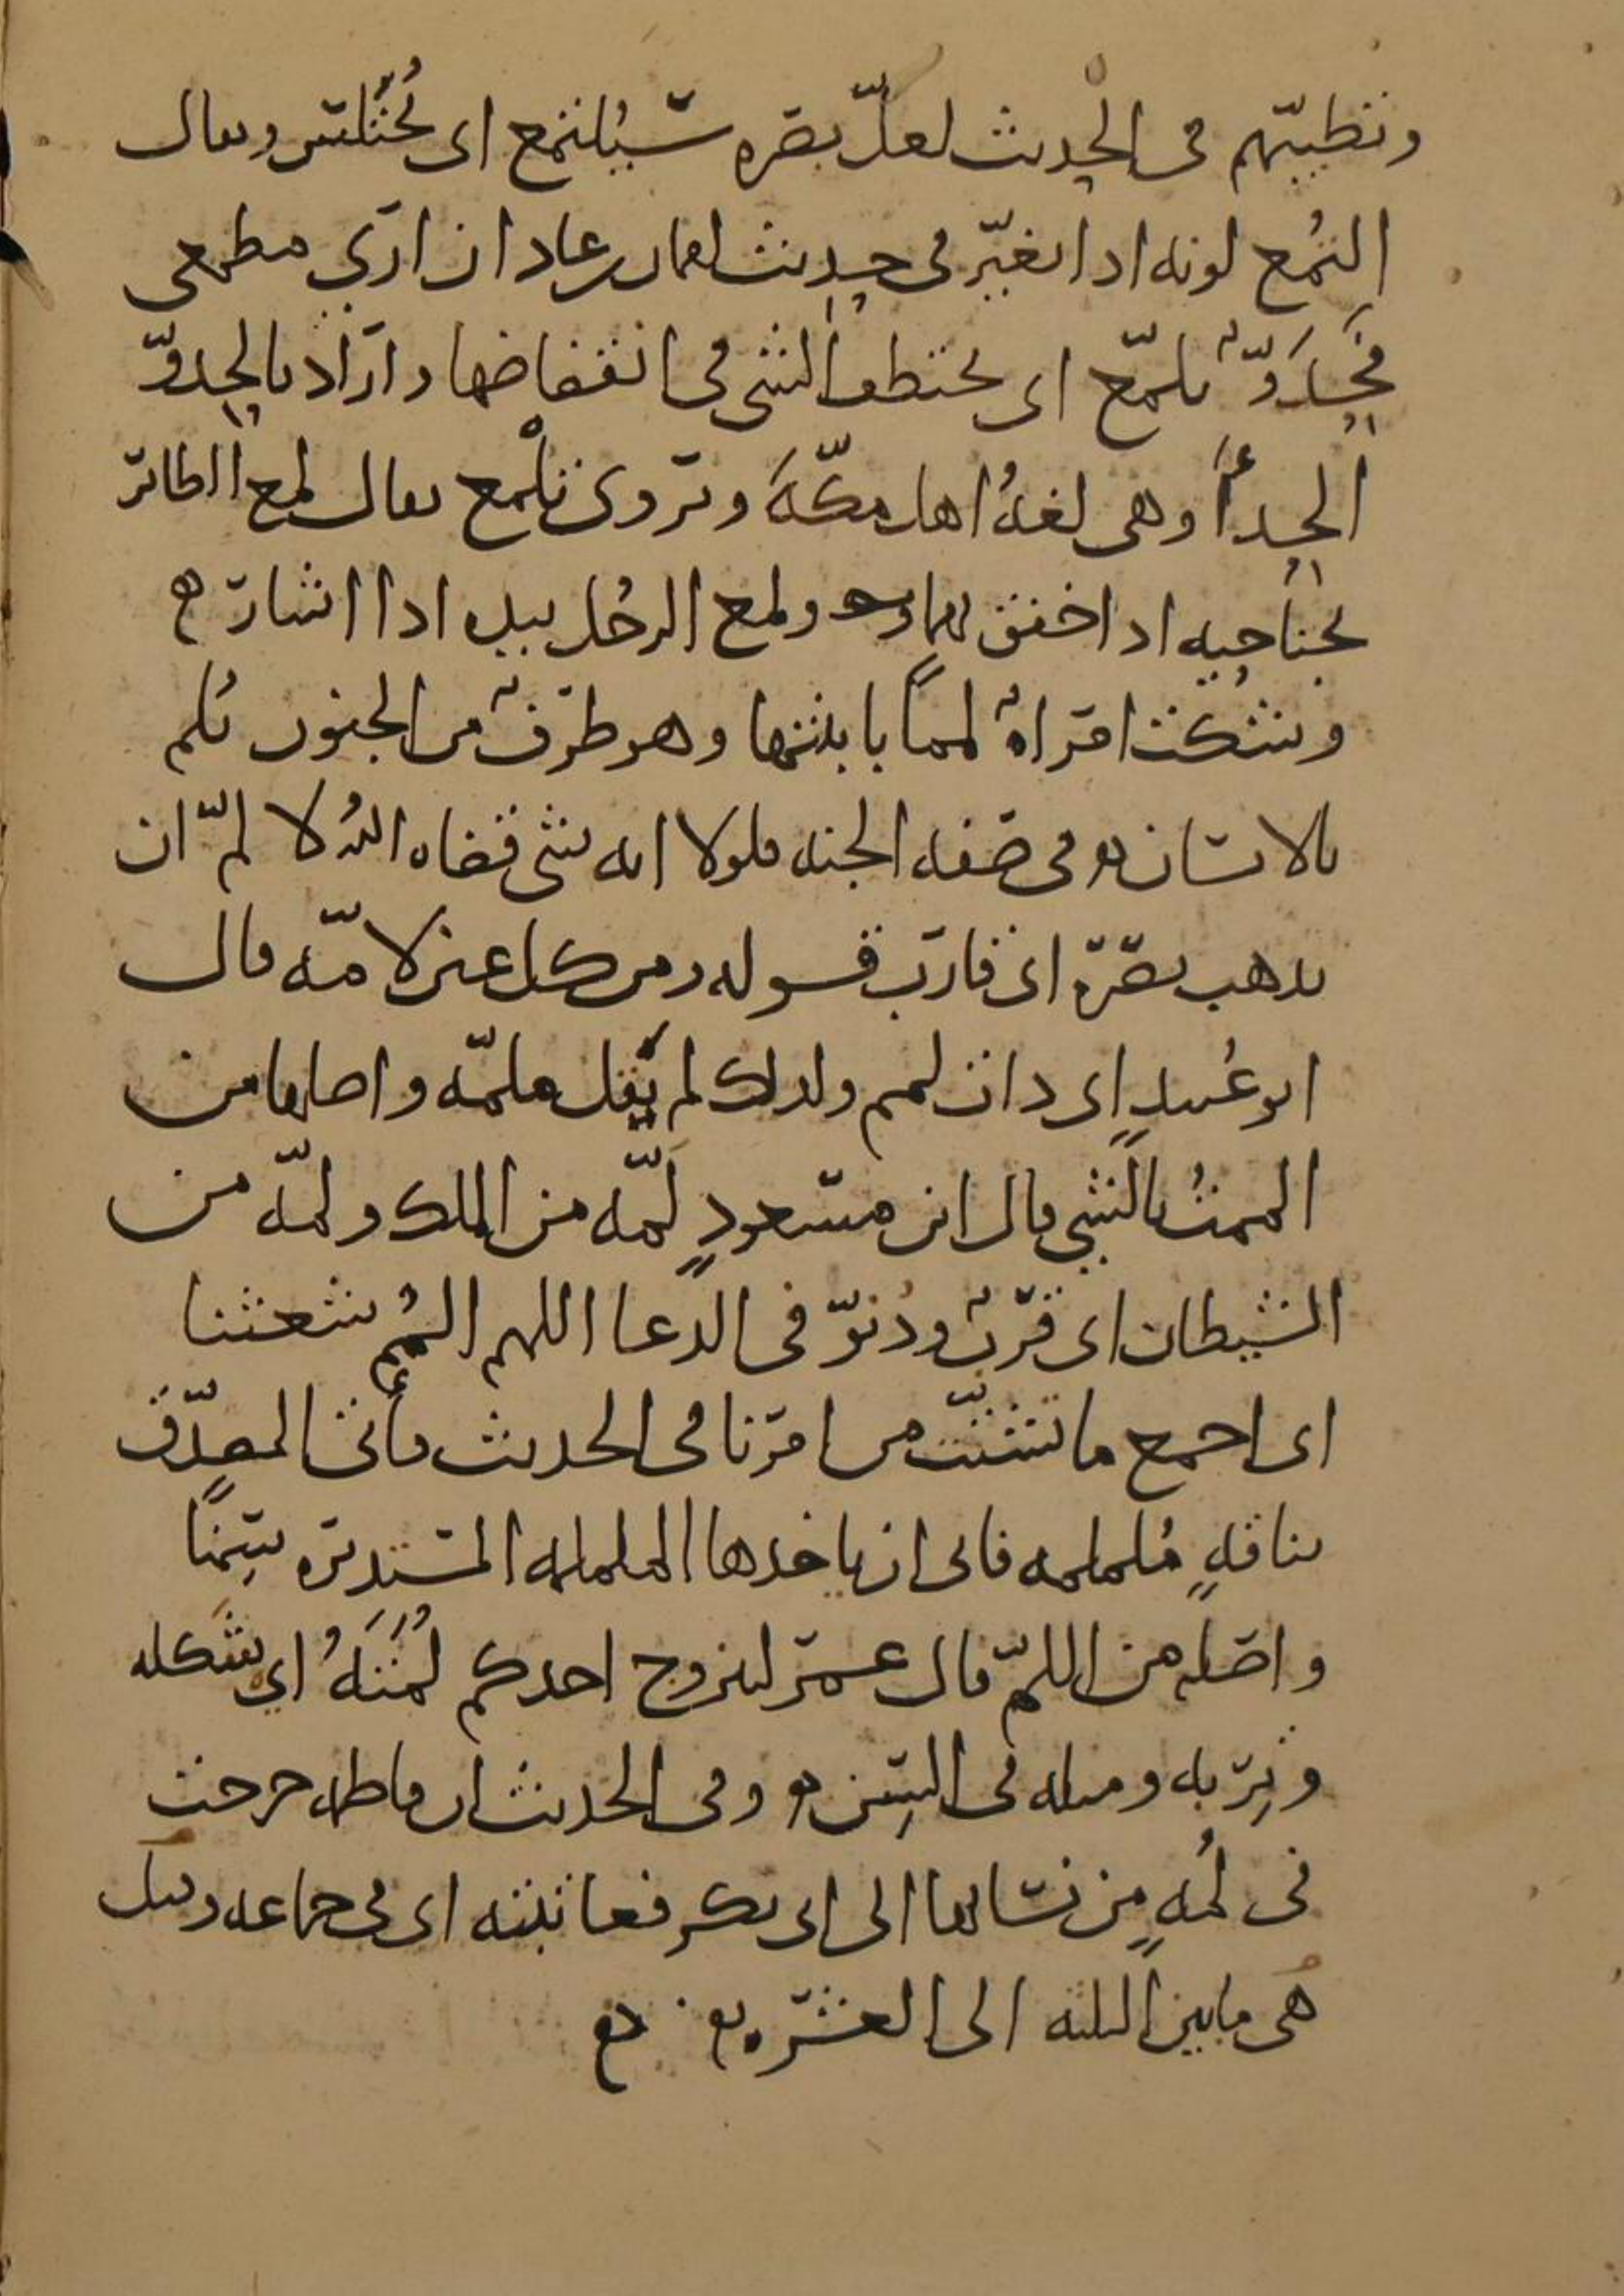 وتطيبهم في الحديث لعل بصره سيلتمع اى يختلس ويقال
التمع لونه اذا تغير في حديث لقمان بن عاد ان ارى مطمعى
فحدو تلمع اى يختطف الشى في انقضاضها واراد بالحدو
الحدأ وهى لغة اهل مكة وتروى تلمع يقال لمع الطائر
بجناحيه اذا خفق بهما ولمع الرجل بيده اذا اشار
وشكت امراة لمما بابنتها وهو طرف من الجنون يلم
بالانسان في صفه الجنه فلولا انه شى قضاه الله لالم ان
يذهب بصره اى قارب قوله ومن كل عين لامه قال
ابو عبيد اى ذات لمم ولذلك لم يقل ملمه واصلها من
الممت بالشى قال ابن مسعود لمه من الملك ولمه من
الشيطان اى قرب ودنو في الدعا اللهم المم شعثنا
اى اجمع ما تشتت من امرنا في الحديث فأتى المصدق
بناقه ململمه فابى ان ياخذها الململمه المستديره سمنا
واصله من اللم قال عمر ليتزوج احدكم لمته اى شكله
وتربه ومثله في السن وفى الحديث ان فاطمه خرجت
في لمه من نسائها الى ابى بكر فعاتبته اى في جماعه وقيل
هى ما بين الثلثه الى العشره